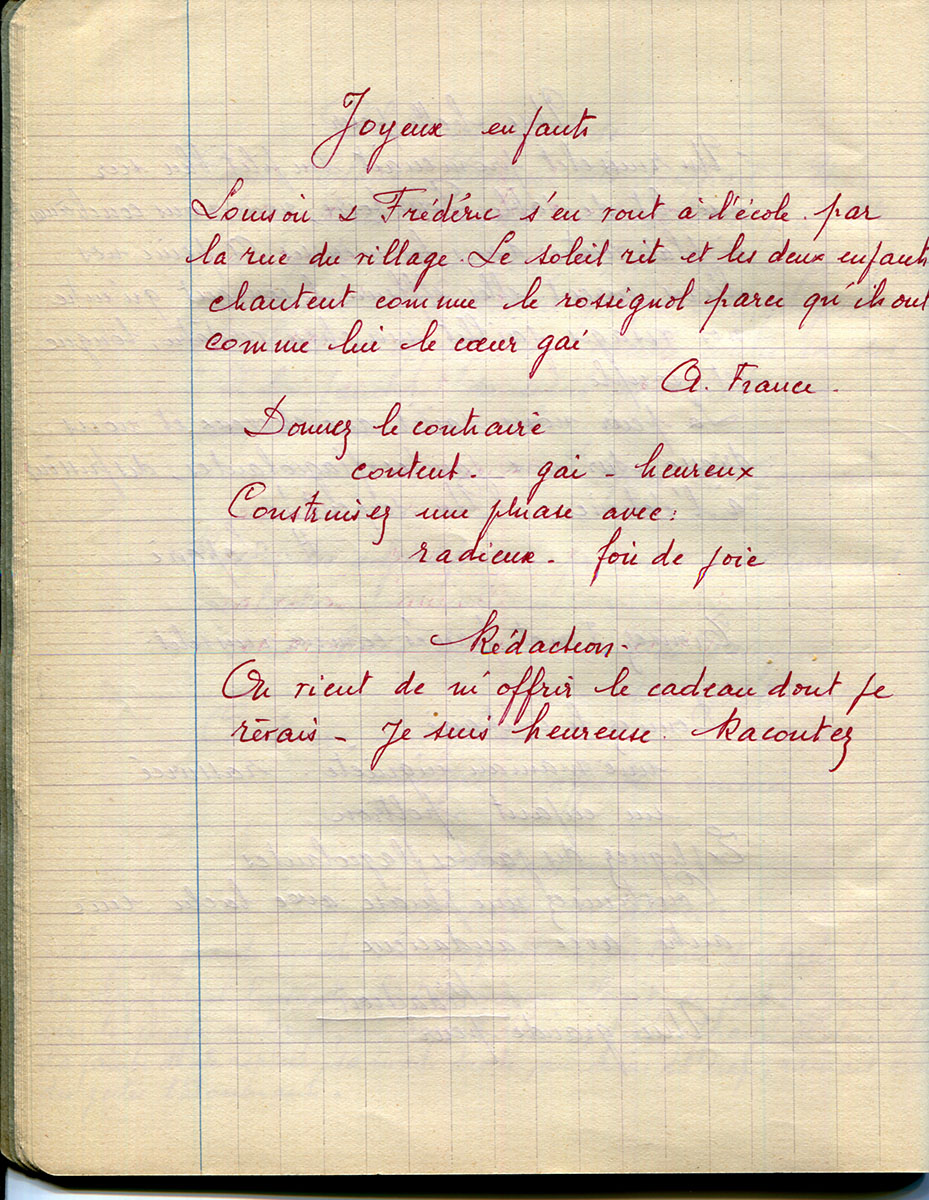 Joyeux enfants
Louison & Frédéric s'en vont à l'école par
la rue du village. Le soleil rit et les deux enfants
chantent comme le rossignol parce qu'ils ont
comme lui le cœur gai
A. France.
Donnez le contraire
content - gai - heureux
Construisez une phrase avec:
radieux - fou de joie
Rédaction -
On vient de m'offrir le cadeau dont je
rêvais - Je suis heureuse. Racontez